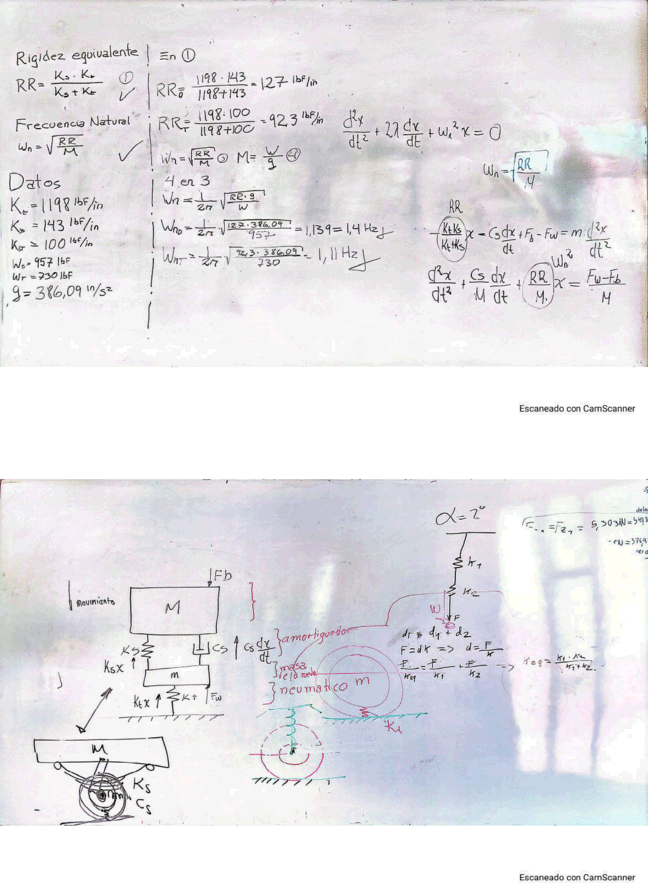 Rigidez equivalente
RR = (Ks · Kt) / (Ks + Kt) ①
Frecuencia Natural
Wn = √(RR/M)
Datos
Kt = 1198 lbf/in
Ks = 143 lbf/in
Ksr = 100 lbf/in
WD = 957 lbf
Wr = 730 lbf
g = 386,09 in/s²
En ①
RRD = (1198 · 143) / (1198 + 143) = 127 lbf/in
RRT = (1198 · 100) / (1198 + 100) = 92,3 lbf/in
Wn = √(RR/M) ③ M = W/g ④
4 en 3
Wn = 1/2π √(RR · g / W)
WnD = 1/2π √(127 · 386,09 / 957) = 1,139 = 1,4 Hz
WnT = 1/2π √(92,3 · 386,09 / 730) = 1,11 Hz
d²x/dt² + 2λ dx/dt + Wn² x = 0
Wn = √(RR/M)
RR
- KtKs/(Kt+Ks) x - Cs dx/dt + Fb - Fw = m d²x/dt²
Wn²
d²x/dt² + Cs/M dx/dt + RR/M x = (Fw - Fb)/M
Escaneado con CamScanner
α = 2°
Fb
movimiento
M
Ks
Cs
Cs dx/dt
amortiguador
Ksx
m
masa
Ktx
Kt
Fw
neumatico
m
Kt
M
Ks
Cs
K1
K2
W
F
dT = d1 + d2
F = dK => d = F/K
F/Keq = F/K1 + F/K2 => Keq = K1·K2 / K1+K2
Escaneado con CamScanner